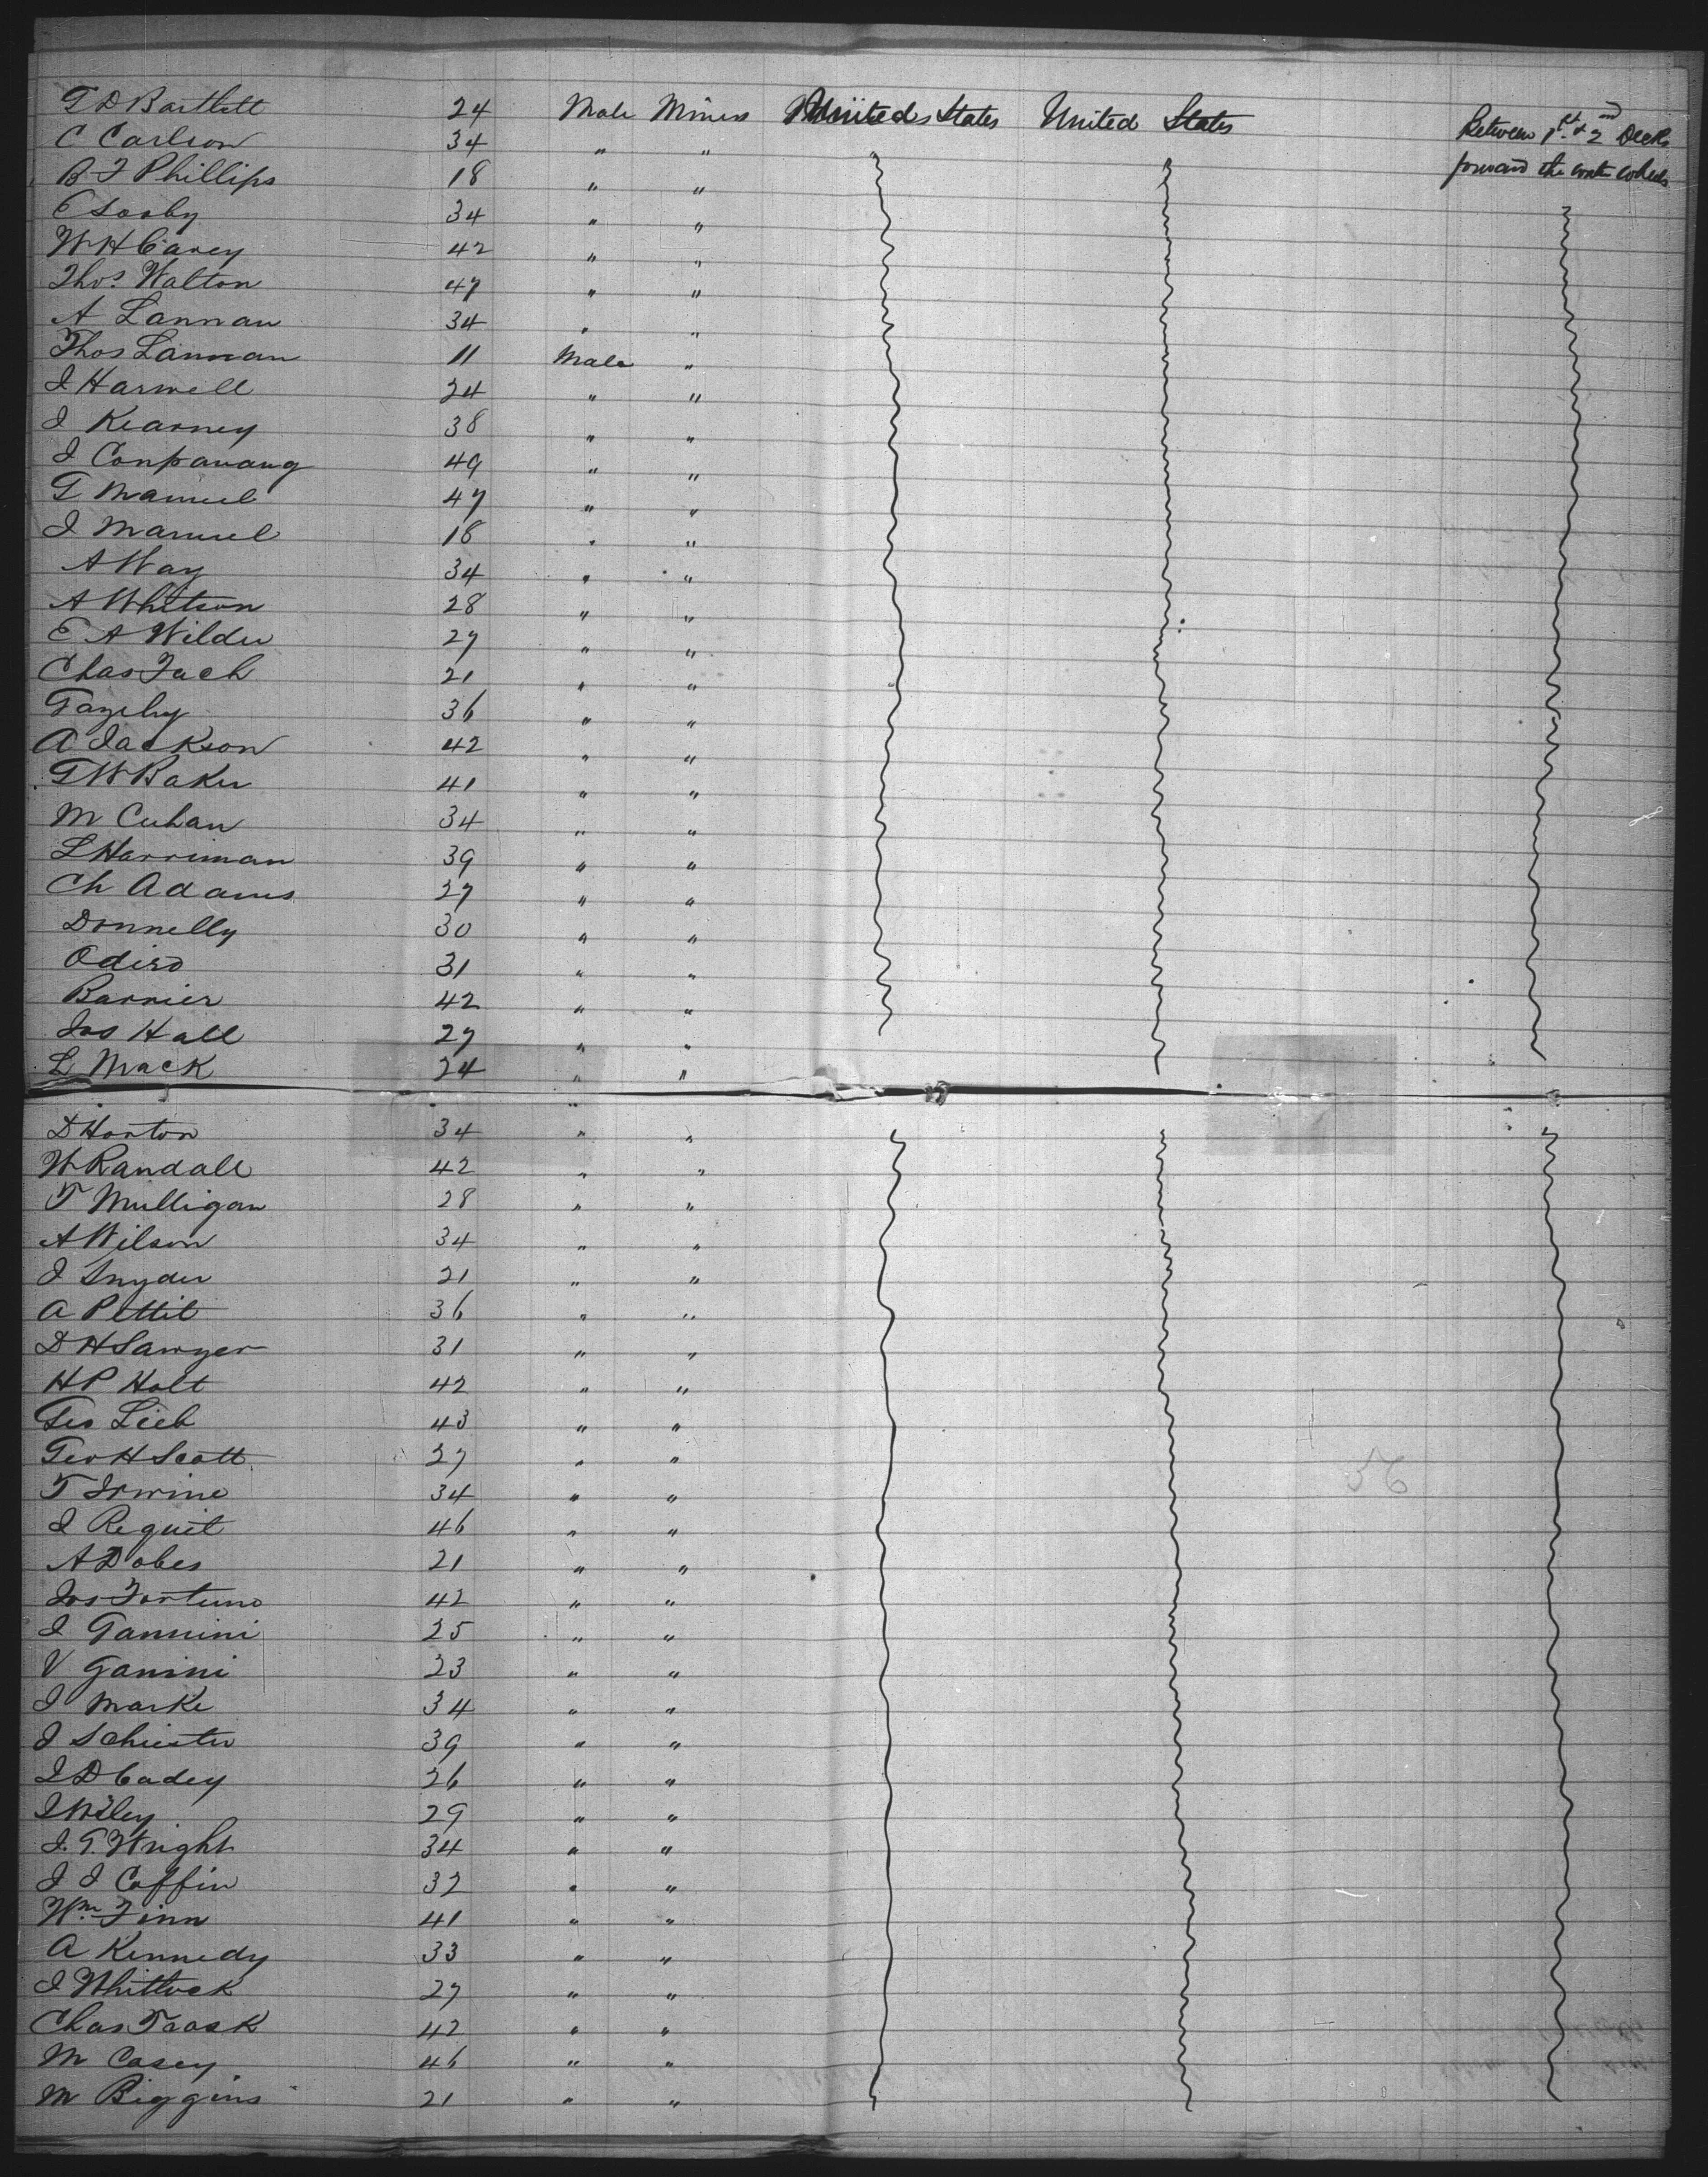 G D Bartlett 24 Male Miner United States United States Between 1st & 2nd Decks
C Carlson 34 " " forward the water wheels
B F Phillips 18 " "
E Sooby 34 " "
W H Carey 42 " "
Thos Walton 47 " "
A Lannan 34 " "
Thos Lannan 11 Male "
J Harwell 24 " "
J Kearney 38 " "
J Conpanang 49 " "
G Manuel 47 " "
J Manuel 18 " "
A Way 34 " "
A Whitson 28 " "
E A Wilder 27 " "
Chas Fach 21 " "
Gazeby 36 " "
A Jackson 42 " "
G W Baker 41 " "
M Cuhan 34 " "
L Harriman 39 " "
Ch Adams 27 " "
Donnelly 30 " "
Odiro 31 " "
Barrier 42 " "
Jas Hall 27 " "
L Mack 24 " "
D Horton 34 " "
W Randall 42 " "
T Mulligan 28 " "
A Wilson 34 " "
J Snyder 21 " "
A Pettit 36 " "
D H Sawyer 31 " "
H P Holt 42 " "
Geo Lieb 43 " "
Geo H Scott 27 " "
T Irwine 34 " "
J Reguit 46 " "
A Dobes 21 " "
Jos Fortune 42 " "
J Gannini 25 " "
V Ganini 23 " "
J Marke 34 " "
J Schuster 39 " "
J D Cadey 26 " "
J Wiley 29 " "
J. G. Wright 34 " "
J J Coffin 32 " "
Wm Finn 41 " "
A Kennedy 33 " "
J Whitlock 27 " "
Chas Trask 42 " "
M Casey 46 " "
M Biggins 21 " "